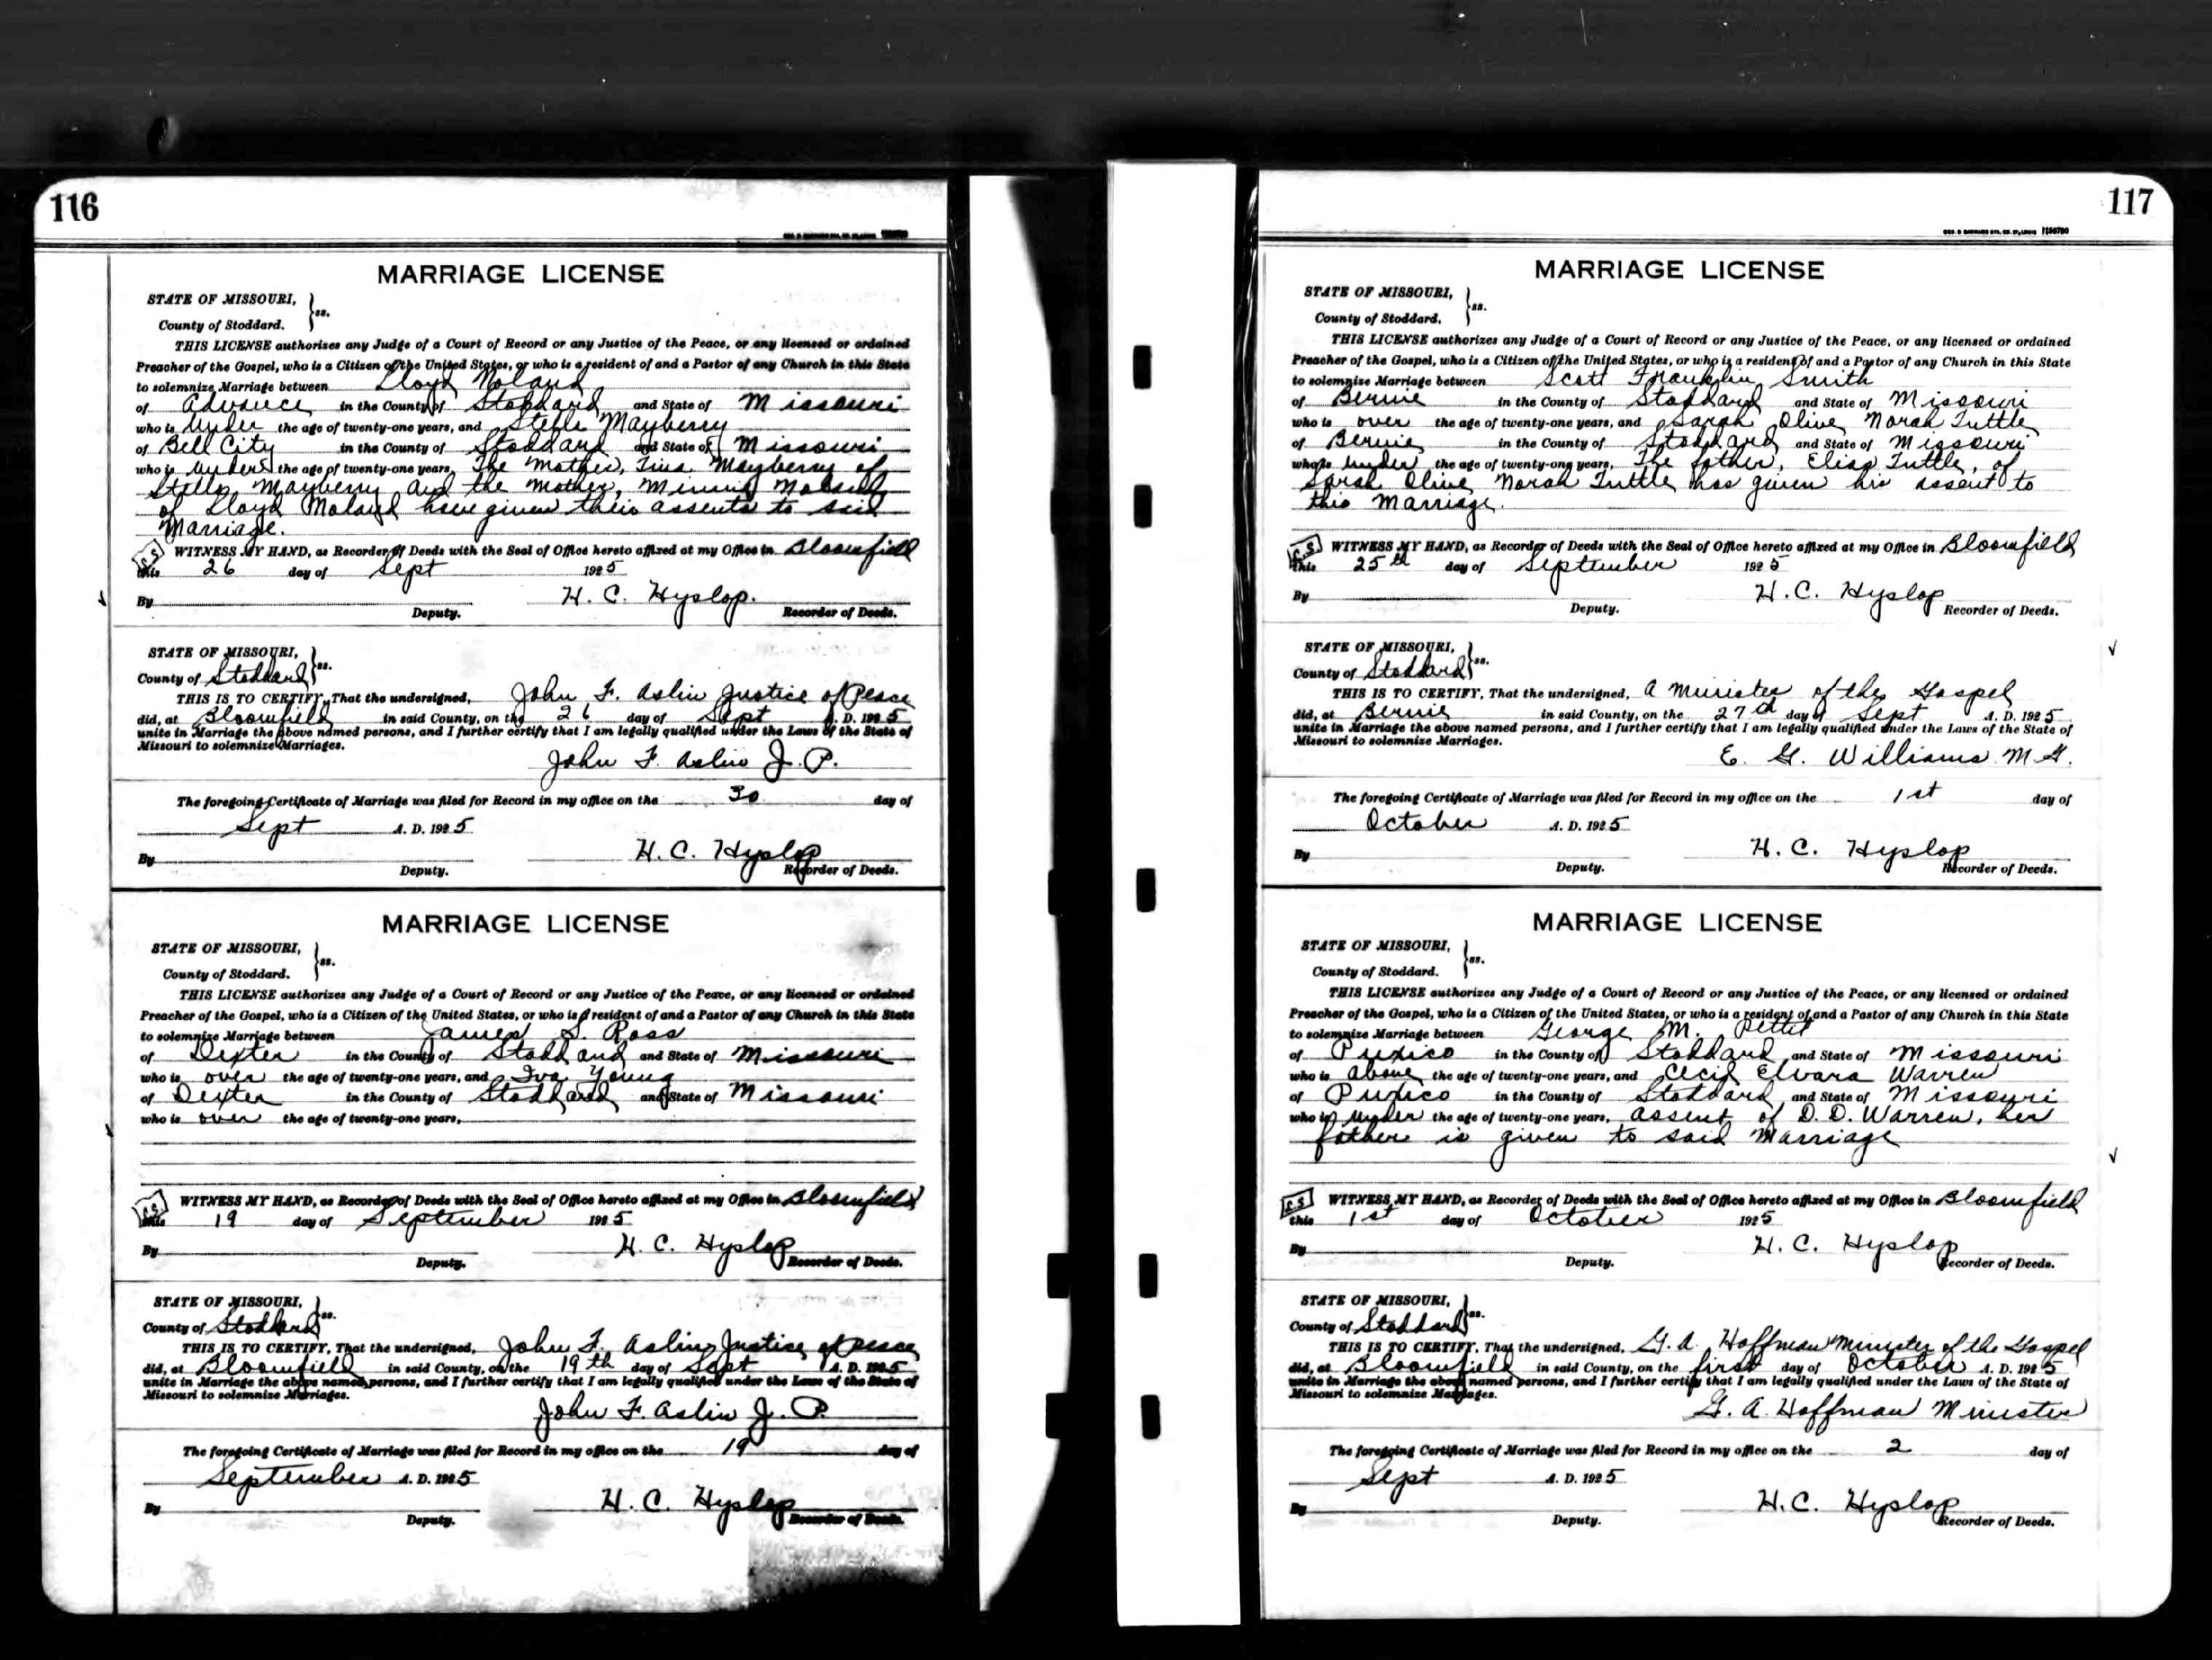 116
MARRIAGE LICENSE
STATE OF MISSOURI,
} ss.
County of Stoddard.
THIS LICENSE authorizes any Judge of a Court of Record or any Justice of the Peace, or any licensed or ordained
Preacher of the Gospel, who is a Citizen of the United States, or who is a resident of and a Pastor of any Church in this State
to solemnize Marriage between Lloyd Noland
of Advance in the County of Stoddard and State of Missouri
who is Under the age of twenty-one years, and Stella Mayberry
of Bell City in the County of Stoddard and State of Missouri
who is under the age of twenty-one years, The Mother, Tina Mayberry of
Stella Mayberry and the Mother, Minnie Noland
of Lloyd Noland have given their assents to said
Marriage.
C.S. WITNESS MY HAND, as Recorder of Deeds with the Seal of Office hereto affixed at my Office in Bloomfield
this 26 day of Sept 1925
By H. C. Hyslop.
Deputy. Recorder of Deeds.
STATE OF MISSOURI,
} ss.
County of Stoddard
THIS IS TO CERTIFY, That the undersigned, John F. Aslin Justice of Peace
did, at Bloomfield in said County, on the 26 day of Sept A. D. 1925
unite in Marriage the above named persons, and I further certify that I am legally qualified under the Laws of the State of
Missouri to solemnize Marriages.
John F. Aslin J. P.
The foregoing Certificate of Marriage was filed for Record in my office on the 30 day of
Sept A. D. 1925
By H. C. Hyslop
Deputy. Recorder of Deeds.
MARRIAGE LICENSE
STATE OF MISSOURI,
} ss.
County of Stoddard.
THIS LICENSE authorizes any Judge of a Court of Record or any Justice of the Peace, or any licensed or ordained
Preacher of the Gospel, who is a Citizen of the United States, or who is a resident of and a Pastor of any Church in this State
to solemnize Marriage between James S. Ross
of Dexter in the County of Stoddard and State of Missouri
who is over the age of twenty-one years, and Iva Young
of Dexter in the County of Stoddard and State of Missouri
who is over the age of twenty-one years,
C.S. WITNESS MY HAND, as Recorder of Deeds with the Seal of Office hereto affixed at my Office in Bloomfield
this 19 day of September 1925
By H. C. Hyslop
Deputy. Recorder of Deeds.
STATE OF MISSOURI,
} ss.
County of Stoddard
THIS IS TO CERTIFY, That the undersigned, John F. Aslin, Justice of Peace
did, at Bloomfield in said County, on the 19th day of Sept A. D. 1925
unite in Marriage the above named persons, and I further certify that I am legally qualified under the Laws of the State of
Missouri to solemnize Marriages.
John F. Aslin J. P.
The foregoing Certificate of Marriage was filed for Record in my office on the 19 day of
September A. D. 1925
By H. C. Hyslop
Deputy. Recorder of Deeds.
117
MARRIAGE LICENSE
STATE OF MISSOURI,
} ss.
County of Stoddard.
THIS LICENSE authorizes any Judge of a Court of Record or any Justice of the Peace, or any licensed or ordained
Preacher of the Gospel, who is a Citizen of the United States, or who is a resident of and a Pastor of any Church in this State
to solemnize Marriage between Scott Franklin Smith
of Bernie in the County of Stoddard and State of Missouri
who is over the age of twenty-one years, and Sarah Olive Norah Tuttle
of Bernie in the County of Stoddard and State of Missouri
who is under the age of twenty-one years, The father, Elias Tuttle, of
Sarah Olive Norah Tuttle has given his assent to
this Marriage.
C.S. WITNESS MY HAND, as Recorder of Deeds with the Seal of Office hereto affixed at my Office in Bloomfield
this 25th day of September 1925
By H. C. Hyslop
Deputy. Recorder of Deeds.
STATE OF MISSOURI,
} ss.
County of Stoddard
THIS IS TO CERTIFY, That the undersigned, A Minister of the Gospel
did, at Bernie in said County, on the 27th day of Sept A. D. 1925
unite in Marriage the above named persons, and I further certify that I am legally qualified under the Laws of the State of
Missouri to solemnize Marriages.
E. G. Williams M.G.
The foregoing Certificate of Marriage was filed for Record in my office on the 1st day of
October A. D. 1925
By H. C. Hyslop
Deputy. Recorder of Deeds.
MARRIAGE LICENSE
STATE OF MISSOURI,
} ss.
County of Stoddard.
THIS LICENSE authorizes any Judge of a Court of Record or any Justice of the Peace, or any licensed or ordained
Preacher of the Gospel, who is a Citizen of the United States, or who is a resident of and a Pastor of any Church in this State
to solemnize Marriage between George M. Pettit
of Puxico in the County of Stoddard and State of Missouri
who is above the age of twenty-one years, and Cecil Elvara Warren
of Puxico in the County of Stoddard and State of Missouri
who is under the age of twenty-one years, assent of D. D. Warren, her
father is given to said Marriage
C.S. WITNESS MY HAND, as Recorder of Deeds with the Seal of Office hereto affixed at my Office in Bloomfield
this 1st day of October 1925
By H. C. Hyslop
Deputy. Recorder of Deeds.
STATE OF MISSOURI,
} ss.
County of Stoddard
THIS IS TO CERTIFY, That the undersigned, G. A. Hoffman Minister of the Gospel
did, at Bloomfield in said County, on the first day of October A. D. 1925
unite in Marriage the above named persons, and I further certify that I am legally qualified under the Laws of the State of
Missouri to solemnize Marriages.
G. A. Hoffman Minister
The foregoing Certificate of Marriage was filed for Record in my office on the 2 day of
Sept A. D. 1925
By H. C. Hyslop
Deputy. Recorder of Deeds.